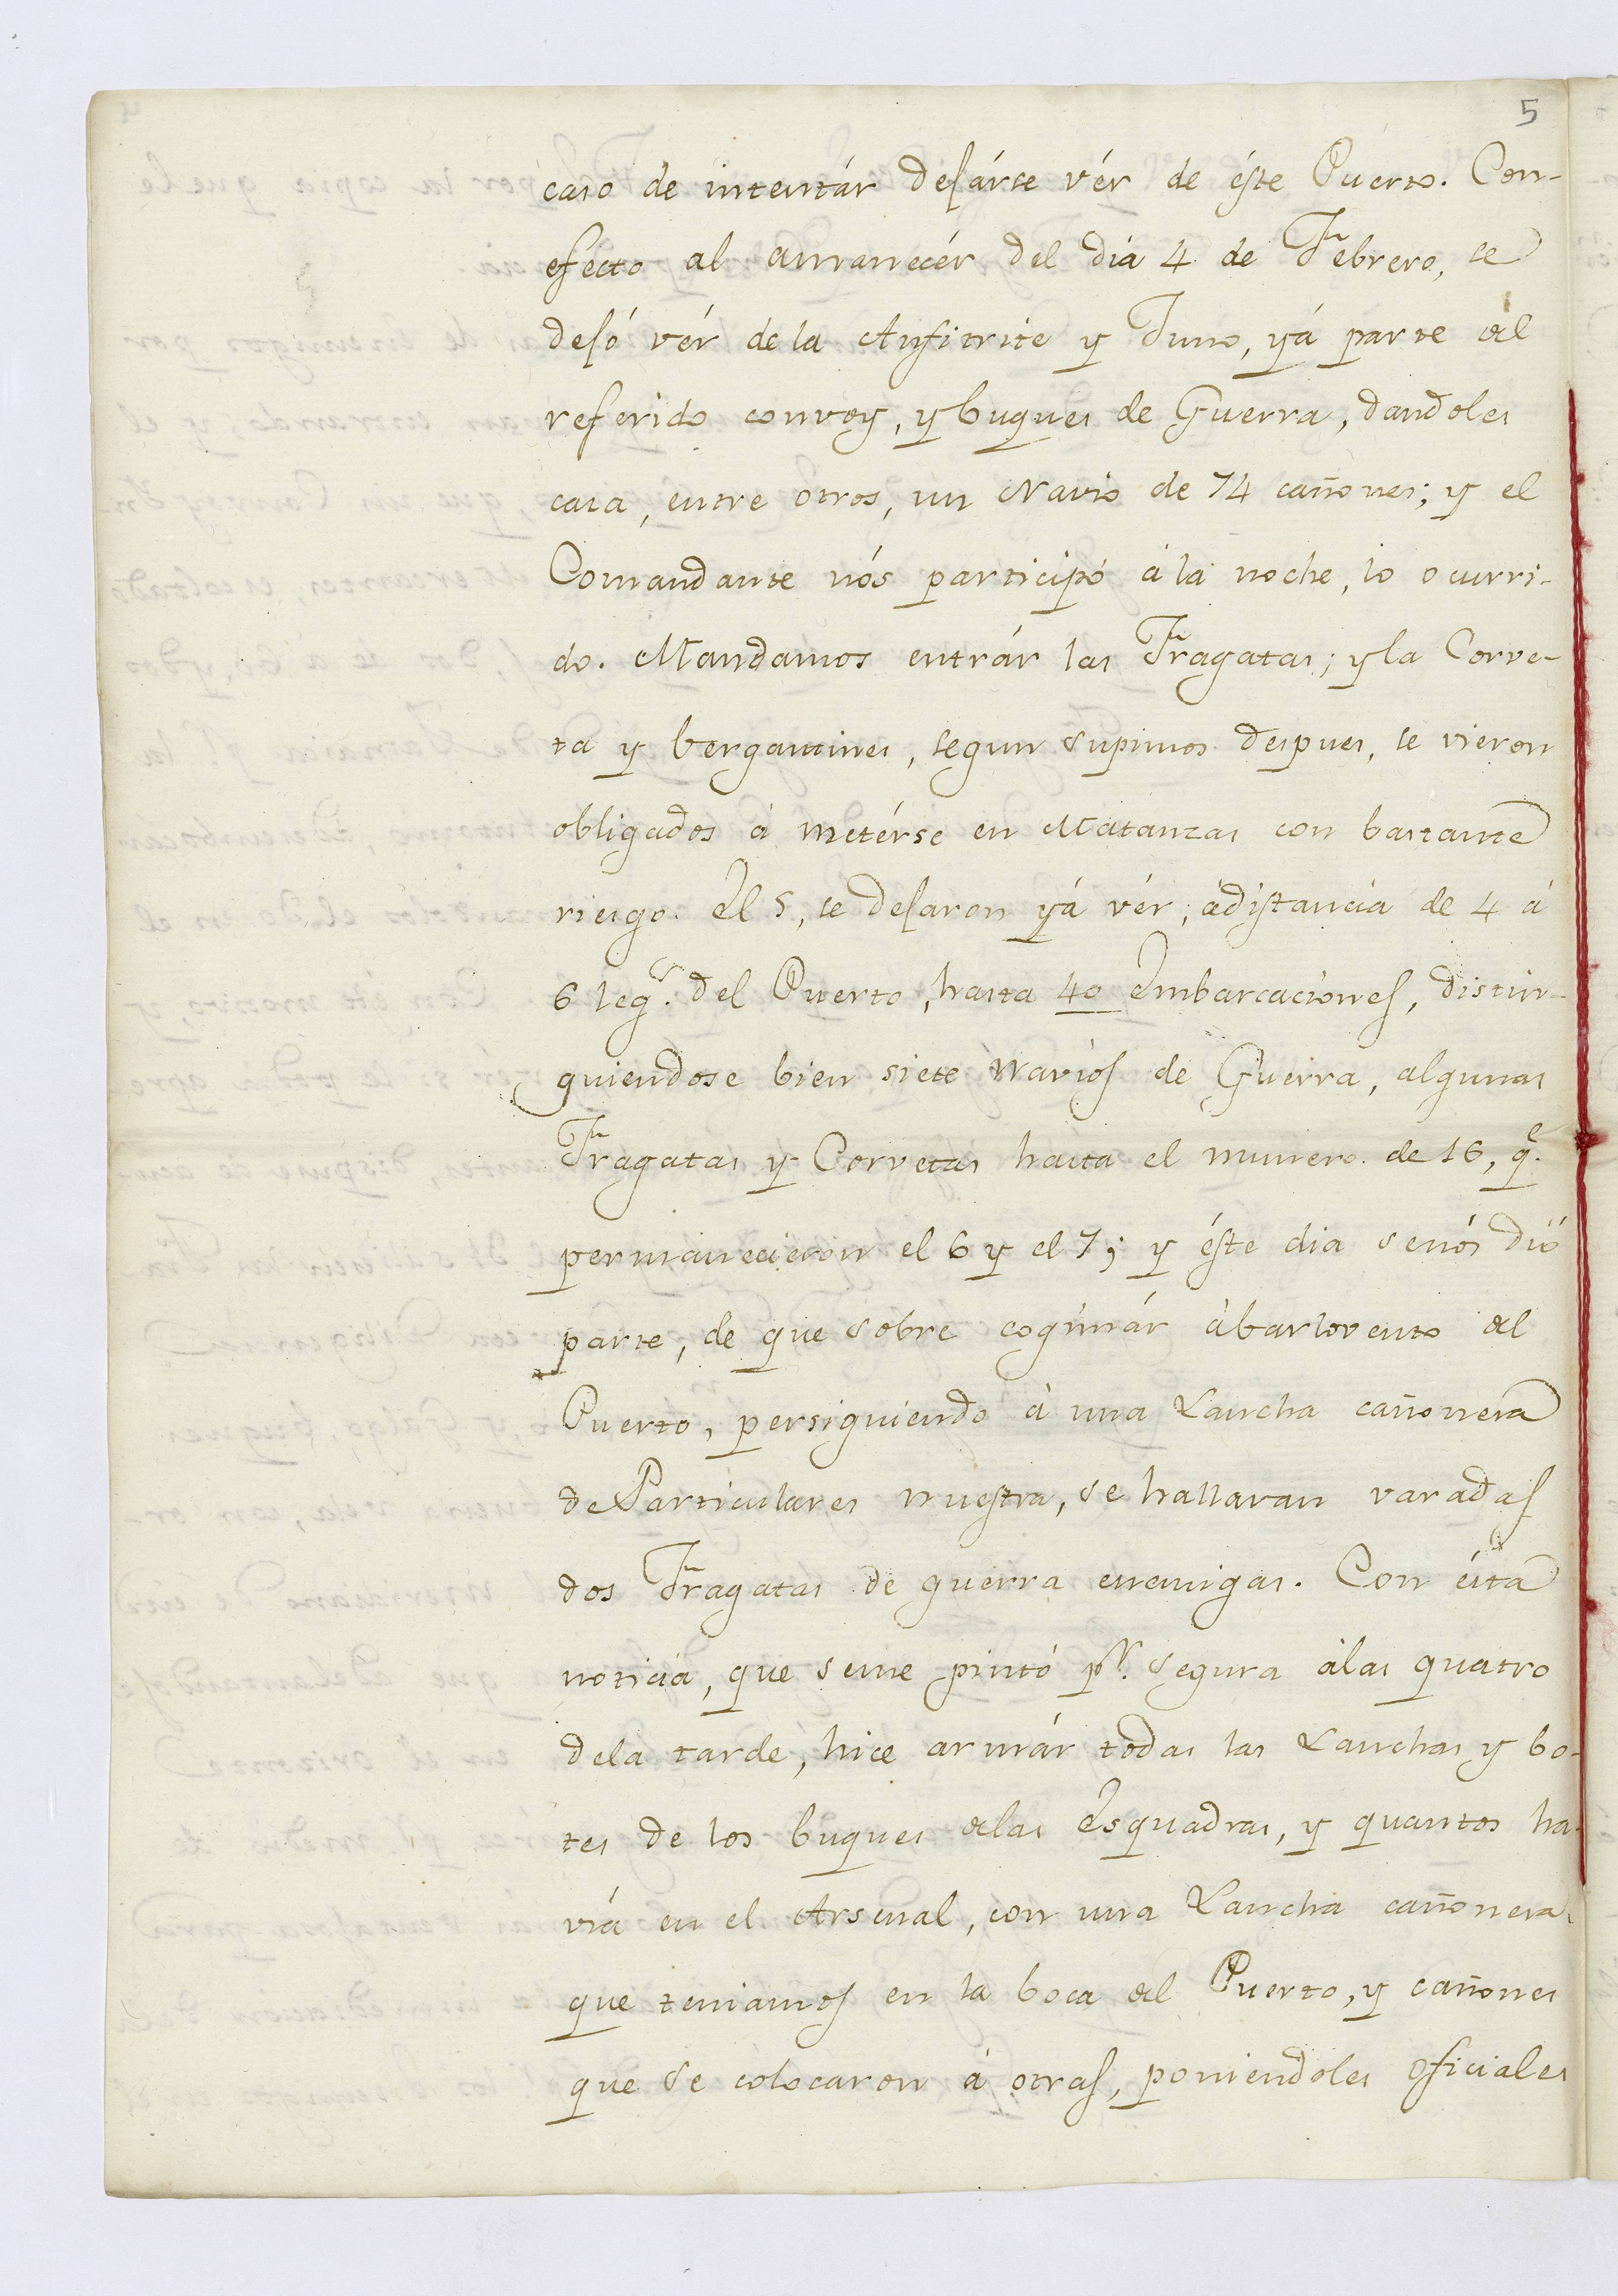 5
caso de intentár dejárse vér de éste Puerto. Con-
efecto al amanecér del dia 4 de Febrero, se
dejó vér de la Anfitrite y Juno, yá parte del
referido convoy, y buques de Guerra, dandoles
casa, entre otros, un Navio de 74 cañones; y el
Comandante nós participó á la noche, lo ocurri-
do. Mandamos entrár las Fragatas; y la Corve-
ta y bergantines, segun supimos despues, se vieron
obligados á metérse en Matanzas con bastante
riesgo. El 5, se dejaron yá vér, á distancia de 4 á
6 legs. del Puerto, hasta 40 Embarcaciones, distin-
guiendose bien siete navios de Guerra, algunas
Fragatas y Corvetas hasta el numero de 16, qe.
permanecieron el 6 y el 7; y éste dia se nós dió
parte, de que sobre cogimár á barlovento del
Puerto, persiguiendo á una Lancha cañonera
de Particulares nuestra, se hallavan varadas
dos Fragatas de guerra enemigas. Con ésta
noticia, que seme pintó pr. segura á las quatro
dela tarde, hice armár todas las Lanchas y bo-
tes de los buques delas Esquadras, y quantos ha-
viá en el Arsenal, con una Lancha cañonera
que teniamos en la boca del Puerto, y cañones
que se colocaron á otras, poniendoles oficiales